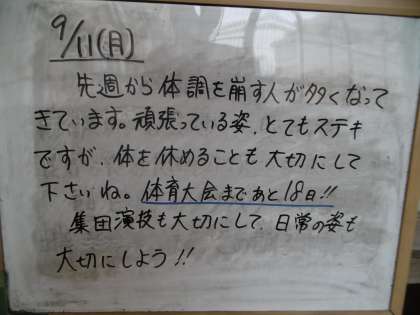 9/11(月)
先週から体調を崩す人が多くなって
きています。頑張っている姿、とてもステキ
ですが、体を休めることも大切にして
下さいね。体育大会まであと18日!!
集団演技も大切にして、日常の姿も
大切にしよう!!